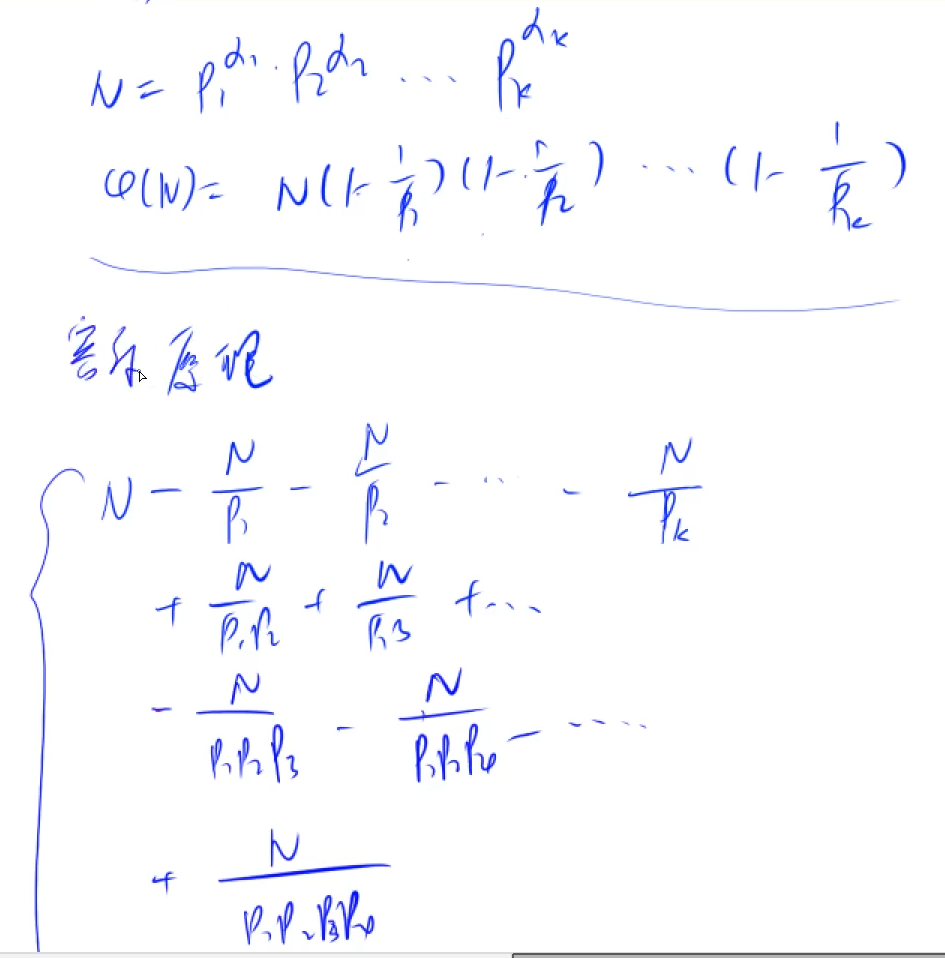 N = P₁^α₁ · P₂^α₂ ... Pₖ^αₖ
φ(N) = N(1-1/P₁)(1-1/P₂) ... (1-1/Pₖ)
容斥原理
N - N/P₁ - N/P₂ - ... - N/Pₖ
+ N/P₁P₂ + N/P₁P₃ + ...
- N/P₁P₂P₃ - N/P₁P₂P₄ - ....
+ N/P₁P₂P₃P₄